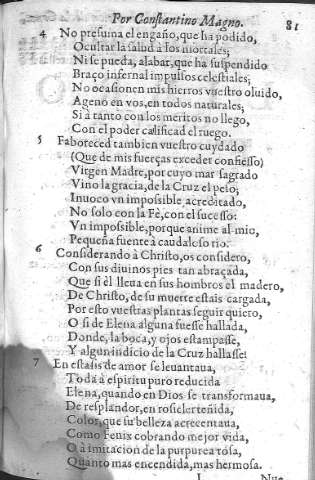 Por Constantino Magno. 81
4 No presuma el engaño, que ha podido,
Ocultar la salud à los mortales;
Ni se pueda, alabar, que ha suspendido
Braço infernal impulsos celestiales;
No ocasionen mis hierros vuestro oluido,
Ageno en vos, en todos naturales;
Si à tanto con los meritos no llego,
Con el poder calificad el ruego.
5 Faboreced tambien vuestro cuydado
(Que de mis fuerças exceder confiesso)
Virgen Madre, por cuyo mar sagrado
Vino la gracia, de la Cruz el peso;
Inuoco vn impossible acreditado,
No solo con la Fè, con el sucesso:
Vn impossible, porque anime al mio,
Pequeña fuente à caudaloso rio.
6 Considerando à Christo, os considero,
Con sus diuinos pies tan abraçada,
Que si èl lleua en sus hombros el madero,
De Christo, de su muerte estais cargada,
Por esto vuestras plantas seguir quiero,
O si de Elena alguna fuesse hallada,
Donde, la boca, y ojos estampasse,
Y algun indicio de la Cruz hallasse!
7 En estasis de amor se leuantaua,
Toda à espiritu puro reducida
Elena, quando en Dios se transformaua,
De resplandor, en rosicler teñida,
Color, que su belleza acrecentaua,
Como Fenix cobrando mejor vida,
O à imitacion de la purpurea rosa,
Quanto mas encendida, mas hermosa.
L Nue